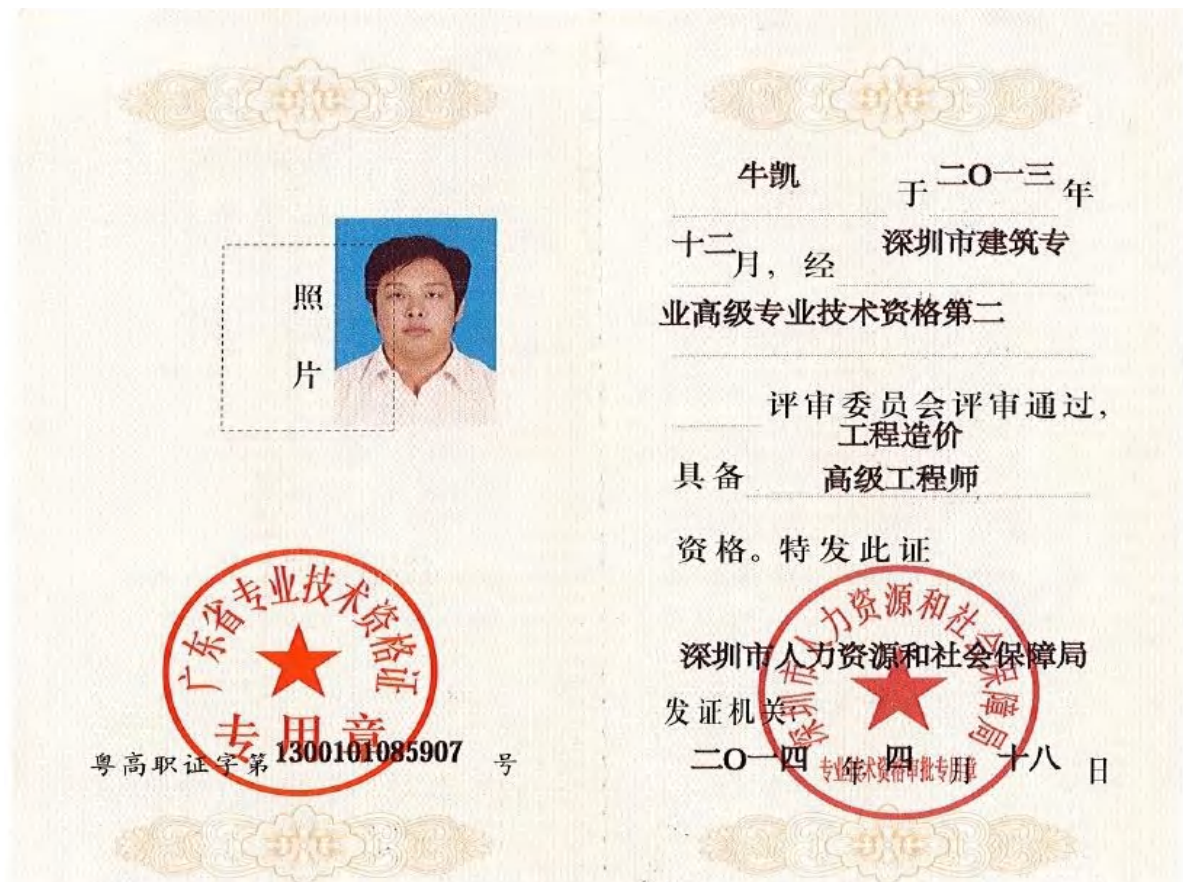 照
片
广东省专业技术资格证
专用章
粤高职证字第1300101085907 号
牛凯 于 二O一三 年
十二月，经 深圳市建筑专
业高级专业技术资格第二
评审委员会评审通过，
工程造价
具备 高级工程师
资格。特发此证
深圳市人力资源和社会保障局
深圳市人力资源和社会保障局
发证机关：
二O一四 年 四 月 十八 日
专业技术资格审批专用章